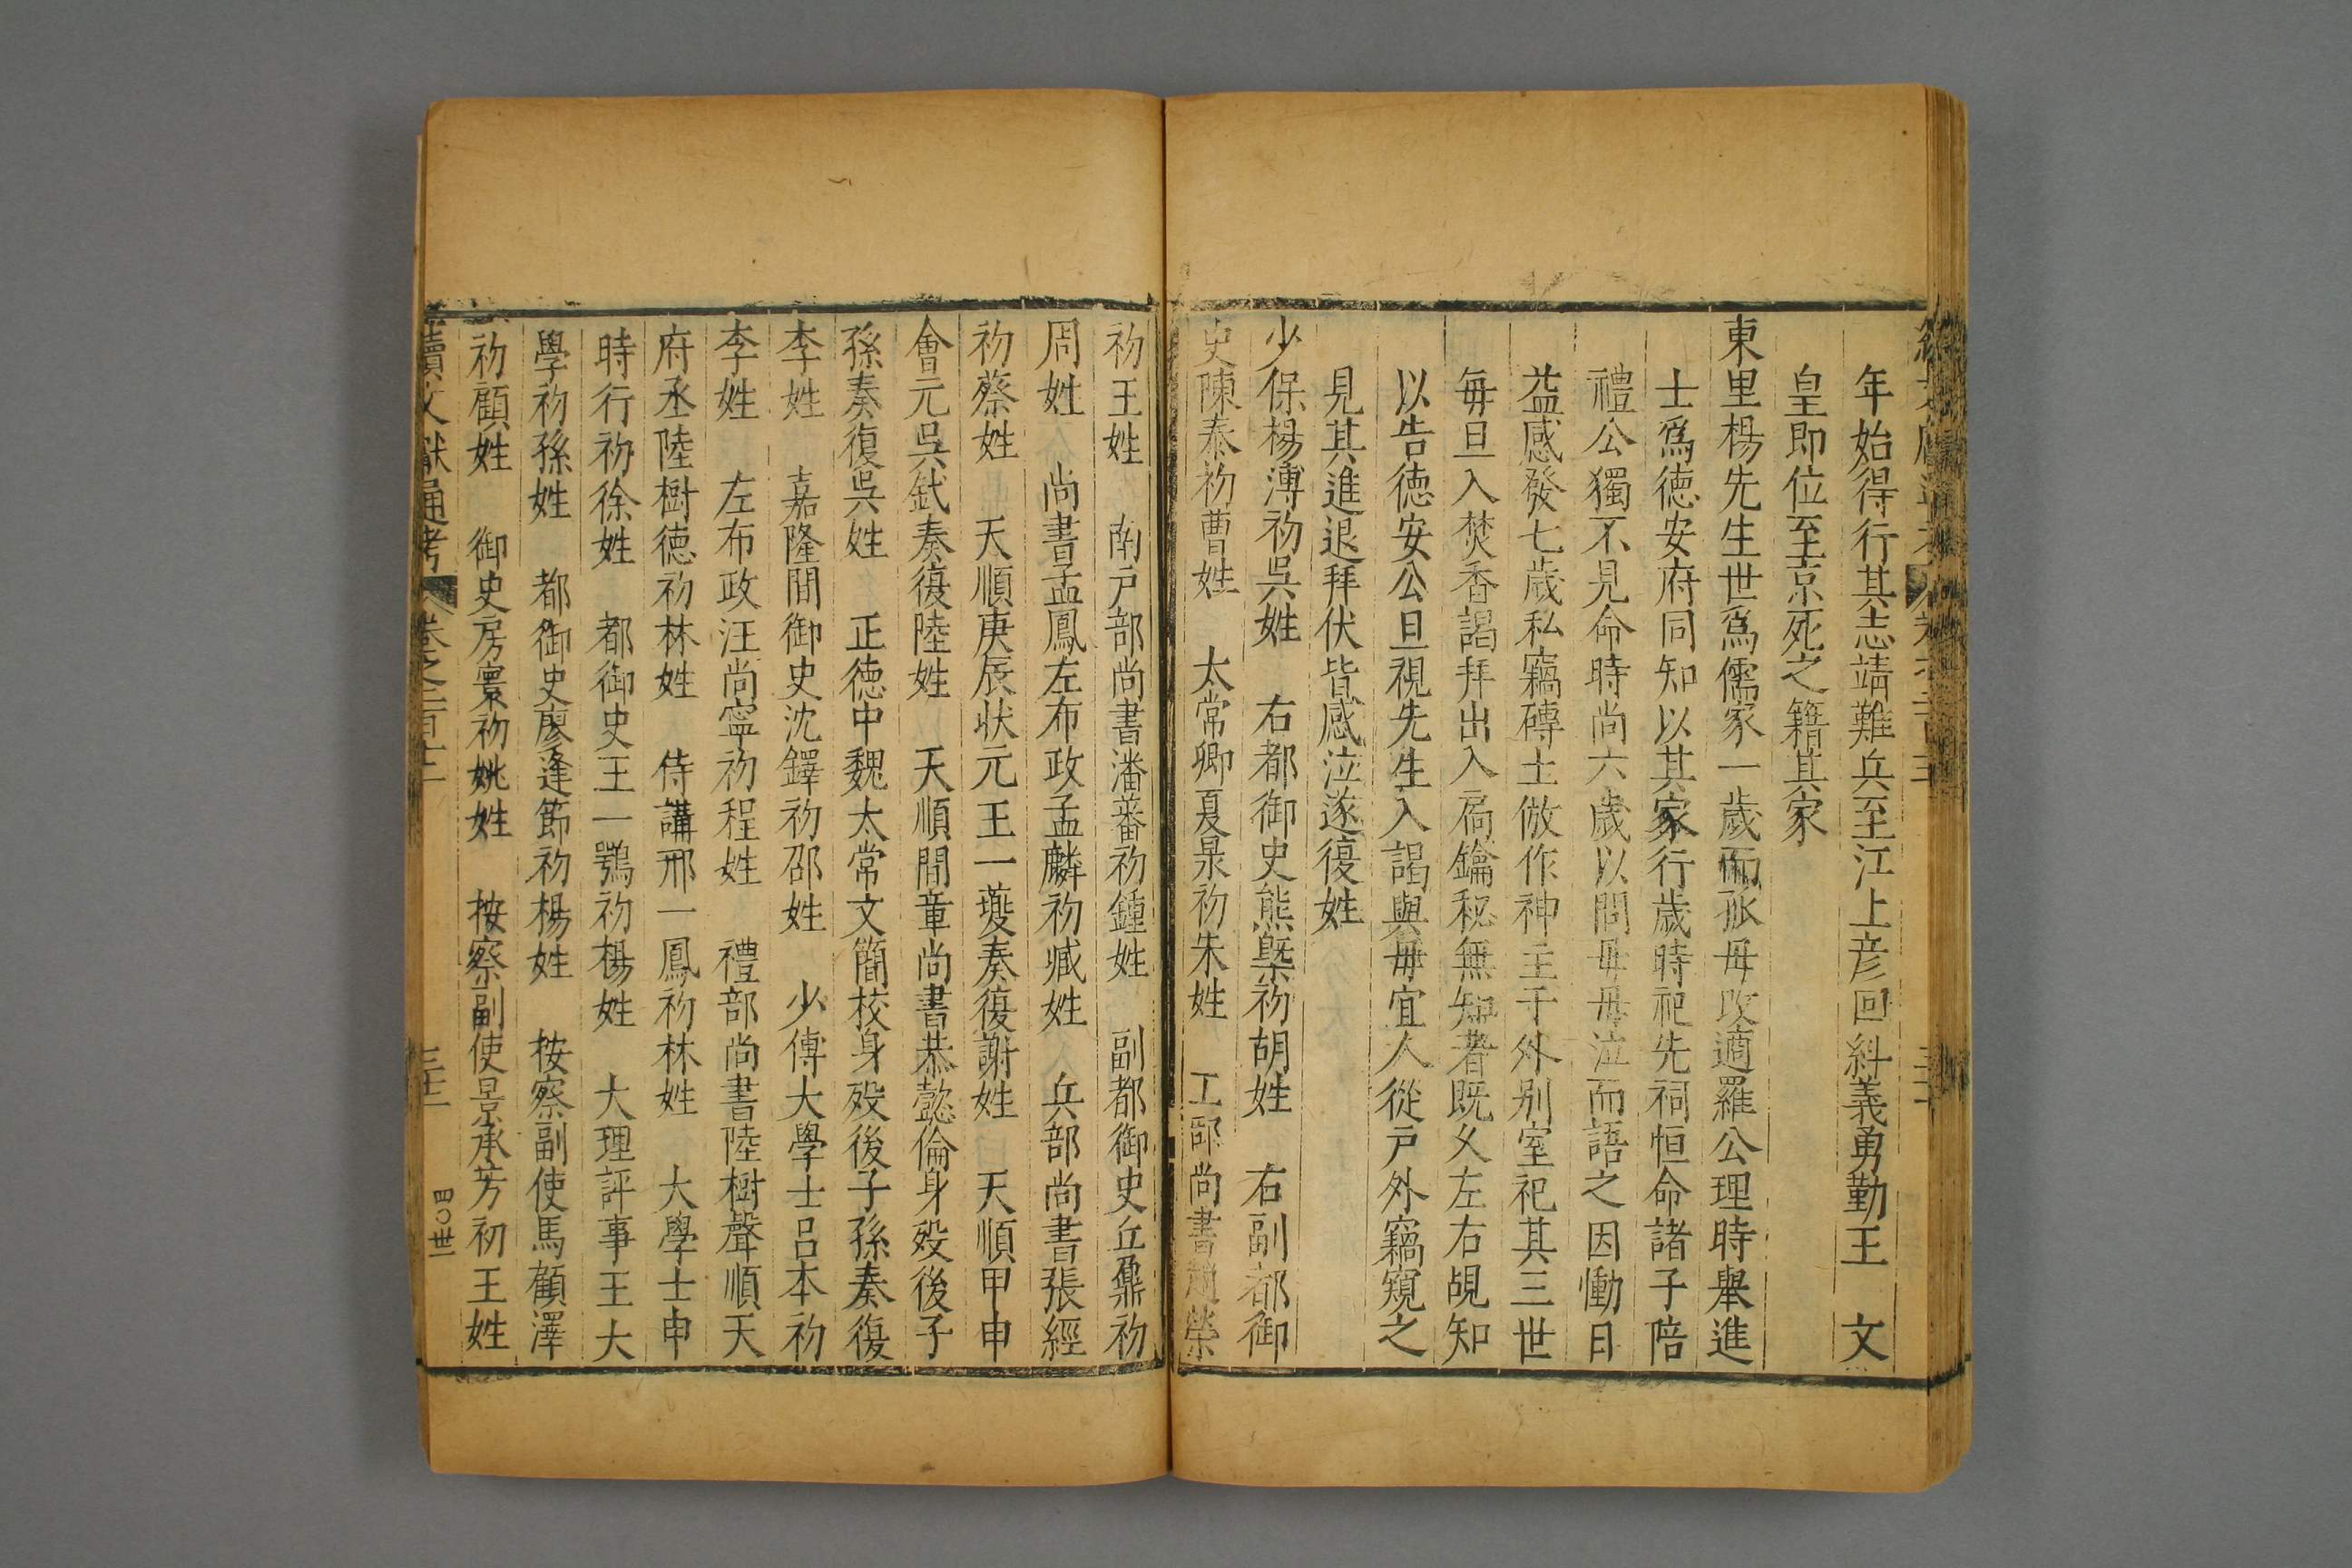 年始得行其志靖難兵至江上彦回糾義勇勤王　文
皇即位至京死之籍其家
東里楊先生世爲儒家一歲而孤母改適羅公理時舉進
士爲德安府同知以其家行歲時祀先祠恒命諸子陪
禮公獨不見命時尚六歲以問母母泣而語之因慟日
益感發七歲私竊磚土倣作神主于外别室祀其三世
每旦入焚香謁拜出入扃鑰秘無知者既久左右覘知
以告德安公旦視先生入謁與毋宜人從戸外竊窺之
見其進退拜伏皆感泣遂復姓
少保楊溥初吳姓　右都御史熊槩初胡姓　右副都御
史陳泰初曹姓　太常卿夏昺初朱姓　工部尚書趙榮
初王姓　南戸部尚書潘蕃初鍾姓　副都御史丘鼐初
周姓　尚書孟鳳左布政孟麟初臧姓　兵部尚書張經
初蔡姓　天順庚辰状元王一夔奏復謝姓　天順甲申
會元吳釴奏復陸姓　天順間章尚書恭懿倫身殁後子
孫奏復吳姓　正德中魏太常文簡校身殁後子孫奏復
李姓　嘉隆間御史沈鐸初邵姓　少傅大學士吕本初
李姓　左布政汪尚寧初程姓　禮部尚書陸樹聲順天
府丞陸樹德初林姓　侍講邢一鳳初林姓　大學士申
時行初徐姓　都御史王一鶚初楊姓　大理評事王大
學初孫姓　都御史廖逢節初楊姓　按察副使馬顧澤
初顧姓　御史房寰初姚姓　按察副使景承芳初王姓
續文獻通考　卷之二百十二
四〇世一